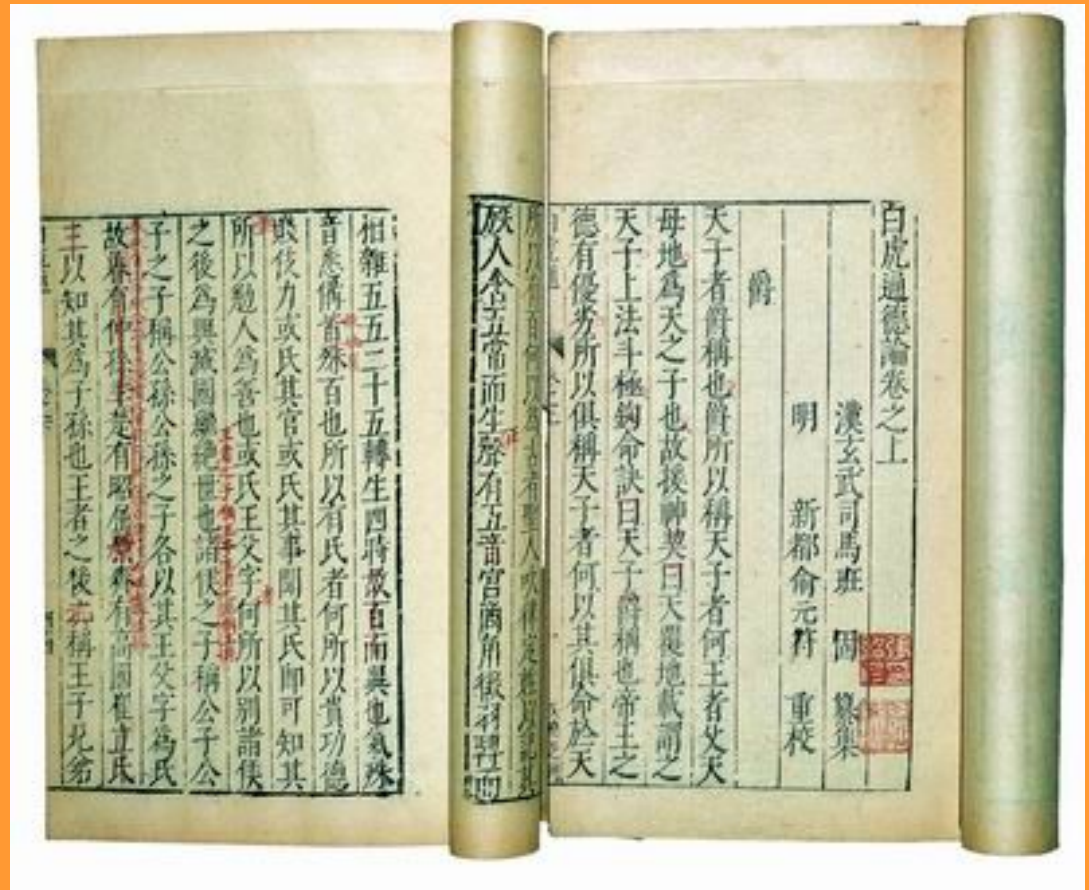 白虎通德論卷之上
漢玄武司馬班 固 纂集
明 新都俞元符 重校
爵
天子者爵稱也爵所以稱天子者何王者父天
母地爲天之子也故援神契曰天覆地載謂之
天子上法斗極鈎命訣曰天子爵稱也帝王之
德有優劣所以俱稱天子者何以其俱命於天
所以有百何以爲古者聖人吹律定姓以記其
族人含五常而生聲有五音宮商角徵羽轉而
相雜五五二十五轉生四時故百而異也氣殊
音悉備殊百也所以有氏者何所以貴功德
賤伎力或氏其官或氏其事聞其氏即可知其
所以勉人爲善也或氏王父字何所以別諸侯
之後爲興滅國繼絕世也諸侯之子稱公子公
子之子稱公孫公孫之子各以其王父字爲氏
故有仲孫楚有昭屈景齊有高國崔立氏
三以知其爲子孫也王者之後亦稱王子兄弟